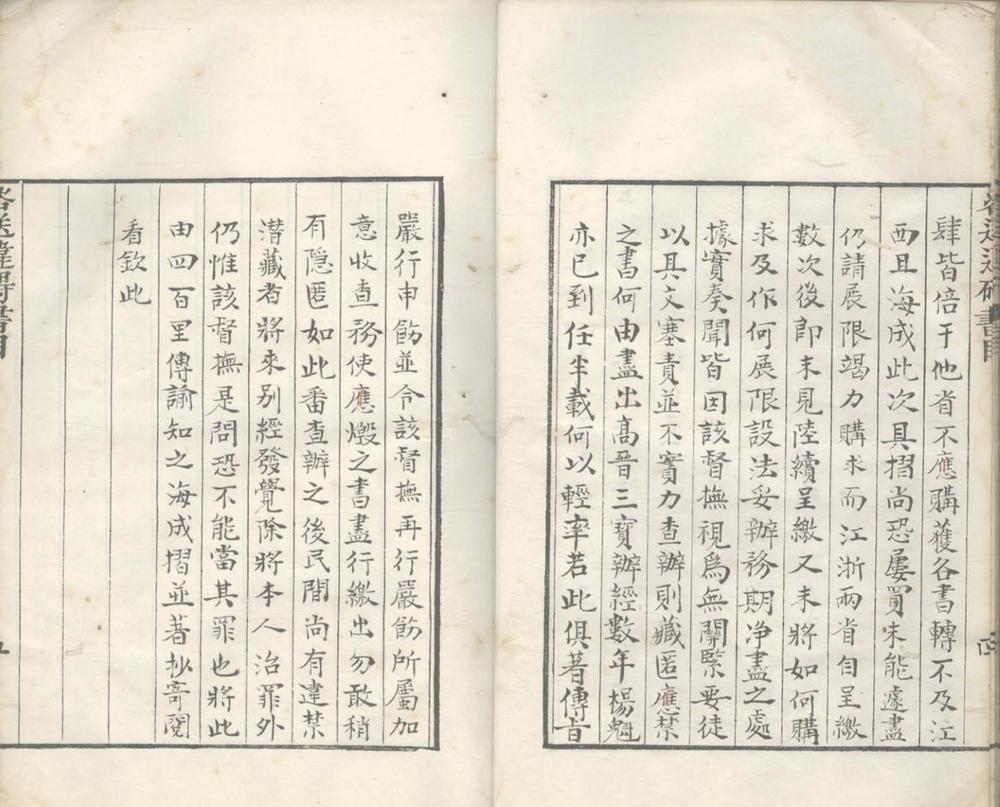 肆皆倍于他省不應購獲各書轉不及江
西且海成此次具摺尚恐屢買未能遽盡
仍請展限竭力購求而江浙兩省自呈繳
數次後即未見陸續呈繳又未將如何購
求及作何展限設法妥辦務期净盡之處
據實奏聞皆因該督撫視爲無關緊要徒
以具文塞責並不實力查辦則藏匿應禁
之書何由盡出高晉三寶辦經數年楊魁
亦已到任半載何以輕率若此俱著傳旨
四
嚴行申飭並令該督撫再行嚴飭所屬加
意收查務使應燬之書盡行繳出勿敢稍
有隱匿如此番查辦之後民間尚有違禁
潛藏者將來别經發覺除將本人治罪外
仍惟該督撫是問恐不能當其罪也將此
由四百里傳諭知之海成摺並著抄寄閱
看欽此